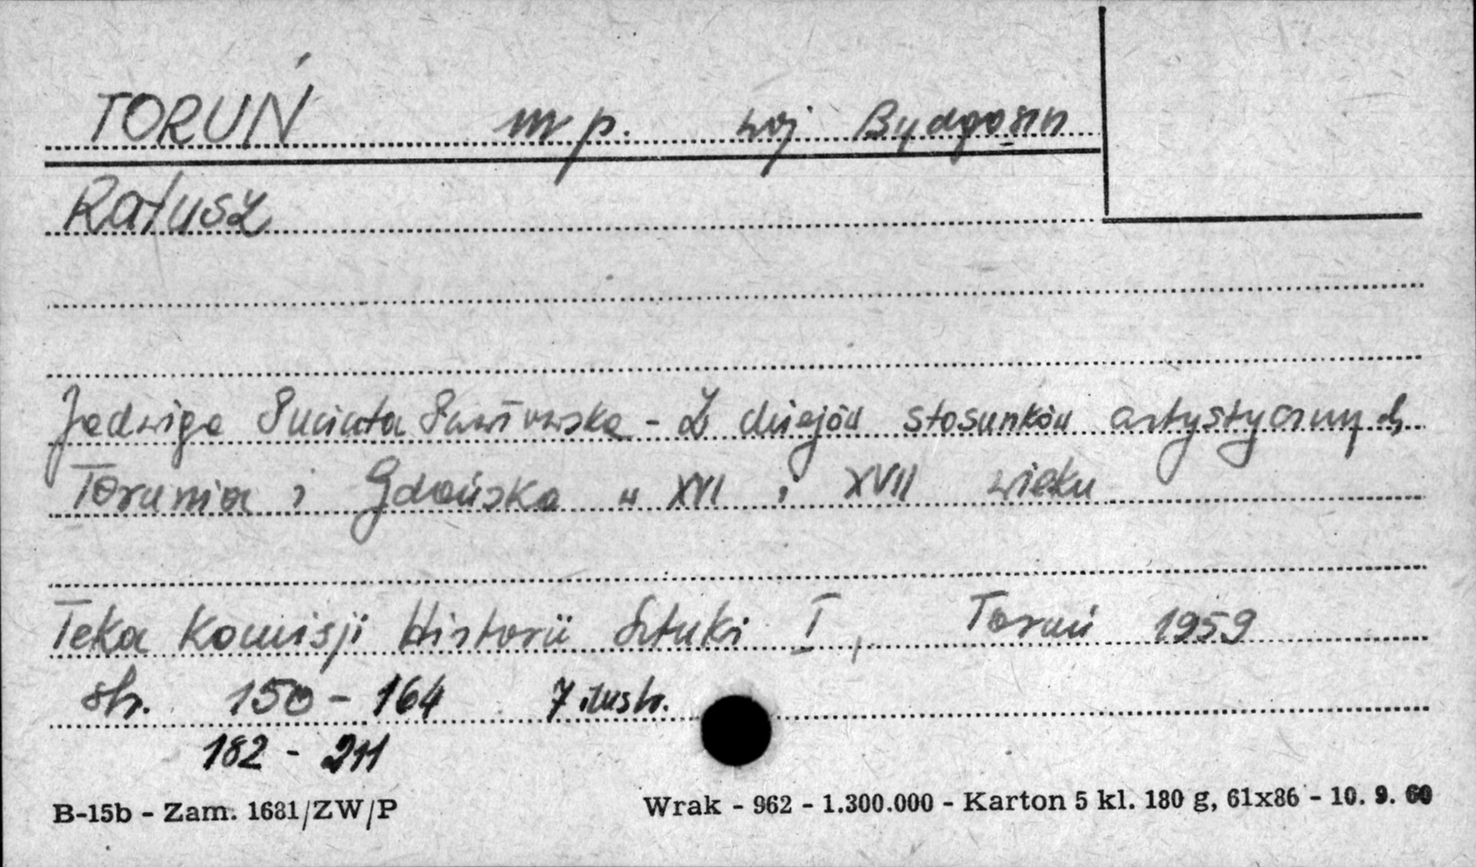 TORUŃ m p. woj Bydgoszcz
Ratusz
Jadwiga - Z dziejów stosunków artystycznych
Torunia i Gdańska w XVI i XVII wieku
Teka Komisji Historii Sztuki I, Toruń 1959
str. 150 - 164 7 ilustr.
182 - 211
B-15b - Zam. 1681/ZW/P Wrak - 962 - 1.300.000 - Karton 5 kl. 180 g, 61x86 - 10. 9. 60